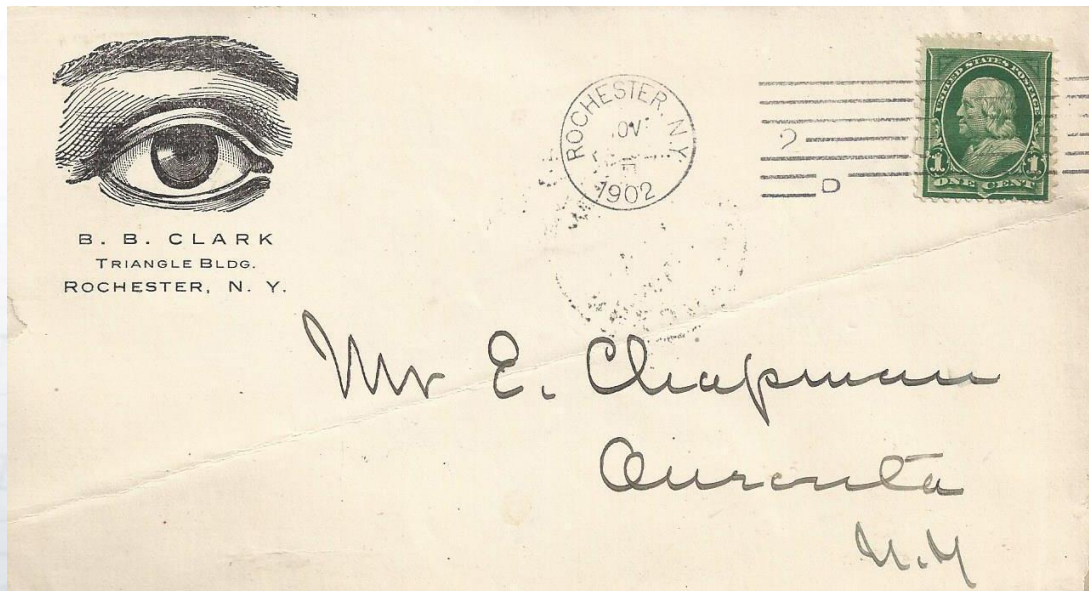 B. B. CLARK
TRIANGLE BLDG.
ROCHESTER, N. Y.
ROCHESTER, N.Y.
NOV
1902
2
D
UNITED STATES POSTAGE
1 1
ONE CENT
Mr E. Chapman
N.Y